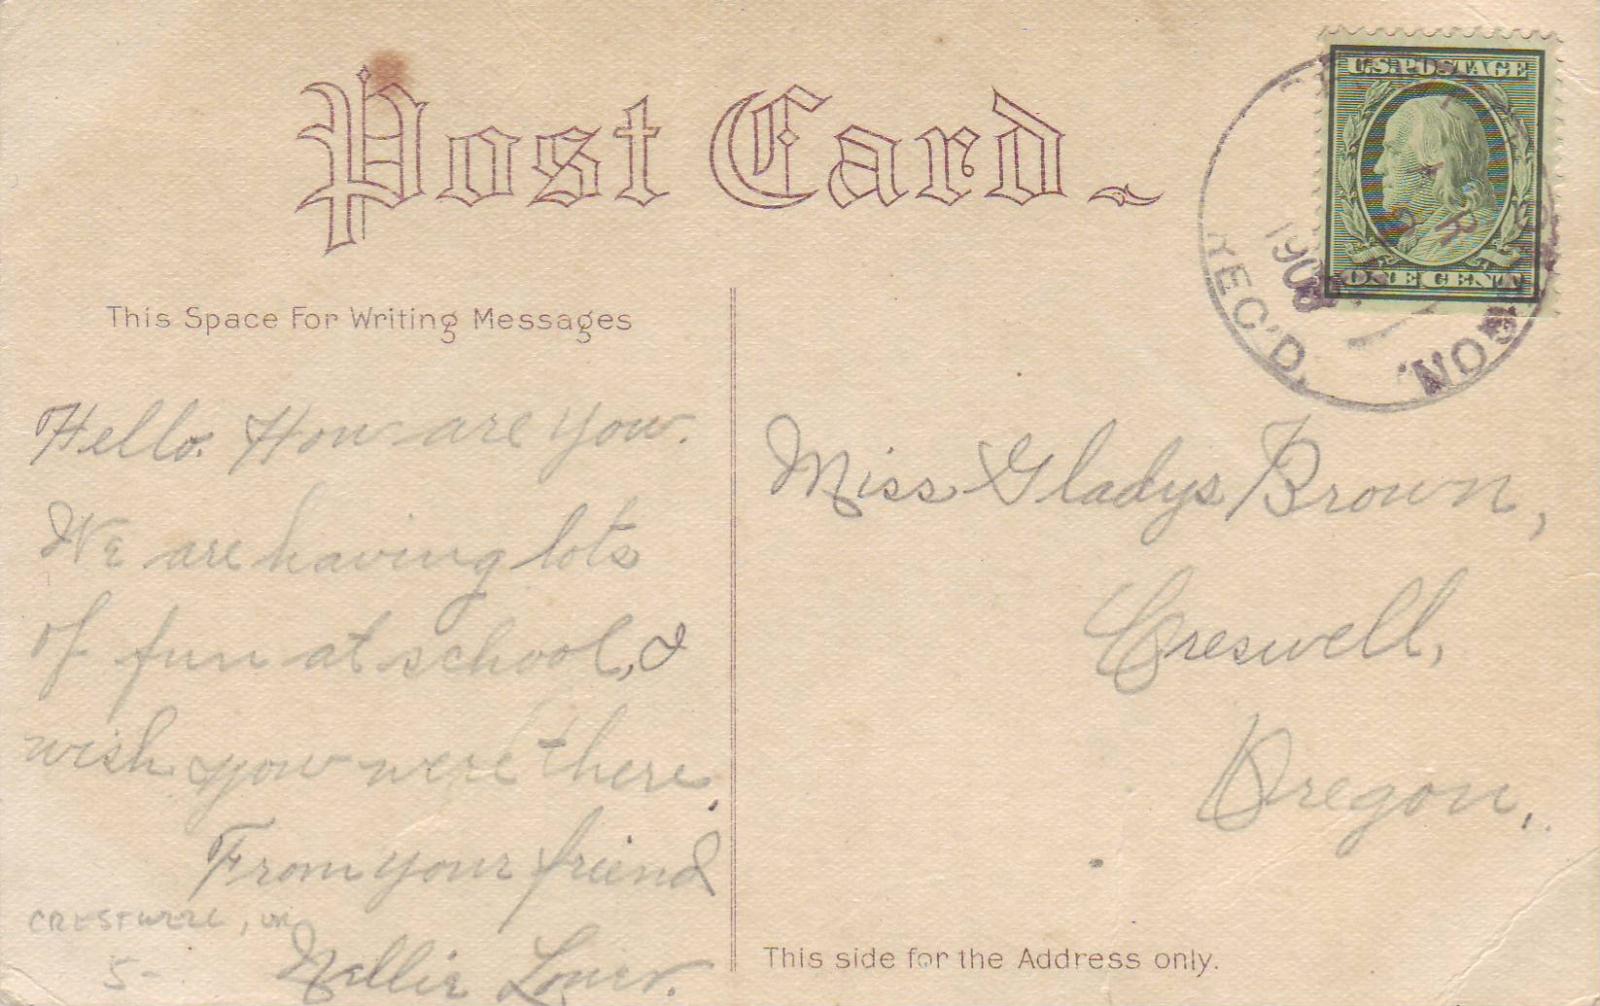 Post Card
U.S. POSTAGE
ONE CENT
REC'D.
This Space For Writing Messages
Hello. How are you.
We are having lots
of fun at school, &
wish you were there.
From your friend
Nellie
CRESTWELL, OR
5-
Miss Gladys Brown,
Creswell,
Oregon,
This side for the Address only.